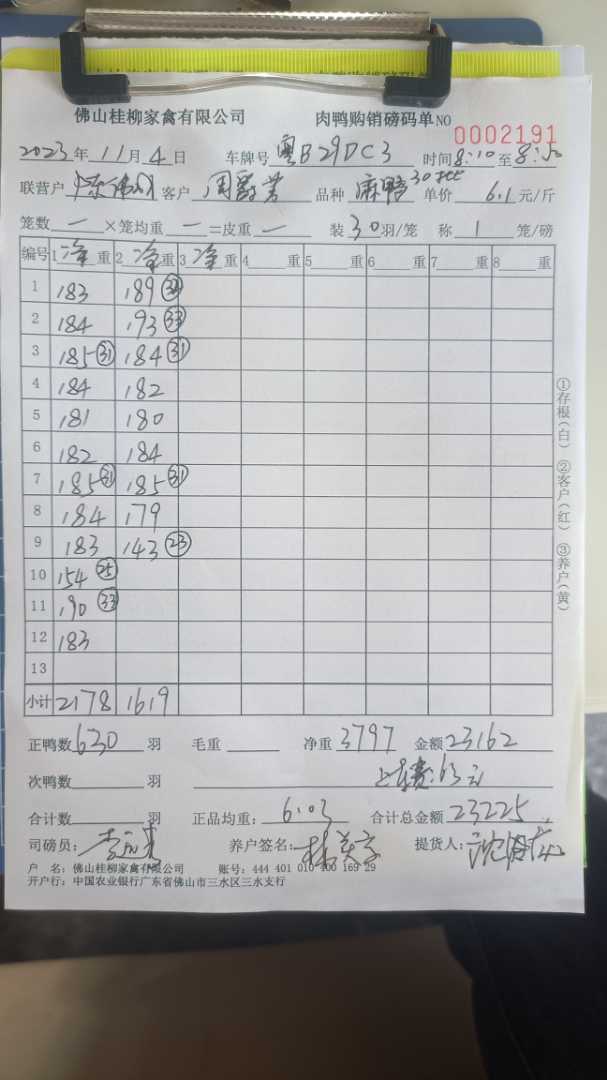 佛山桂柳家禽有限公司 肉鸭购销磅码单 NO 0002191
2023年 11月 4日 车牌号 粤B29DC3 时间 8:10 至
联营户 客户 周 品种 麻鸭 单价 6.1 元/斤
笼数 一 ×笼均重 一 =皮重 一 装 30 羽/笼 称 1 笼/磅
编号 1 净 重 2 净 重 3 净 重 4 重 5 重 6 重 7 重 8 重
1 183 189
2 184 193 (33)
3 185 (31) 184 (31)
4 184 182
5 181 180
6 182 184
7 185 (31) 185 (31)
8 184 179
9 183 143 (23)
10 154 (25)
11 190 (33)
12 183
13
小计 2178 1619
正鸭数 630 羽 毛重 净重 3797 金额 23162
次鸭数 羽 上车费:63元
合计数 羽 正品均重: 6.03 合计总金额 23225
司磅员: 养户签名: 提货人:
户 名: 佛山桂柳家禽有限公司 账号: 444 401 010 400 169 29
开户行: 中国农业银行广东省佛山市三水区三水支行
①存根(白) ②客户(红) ③养户(黄)